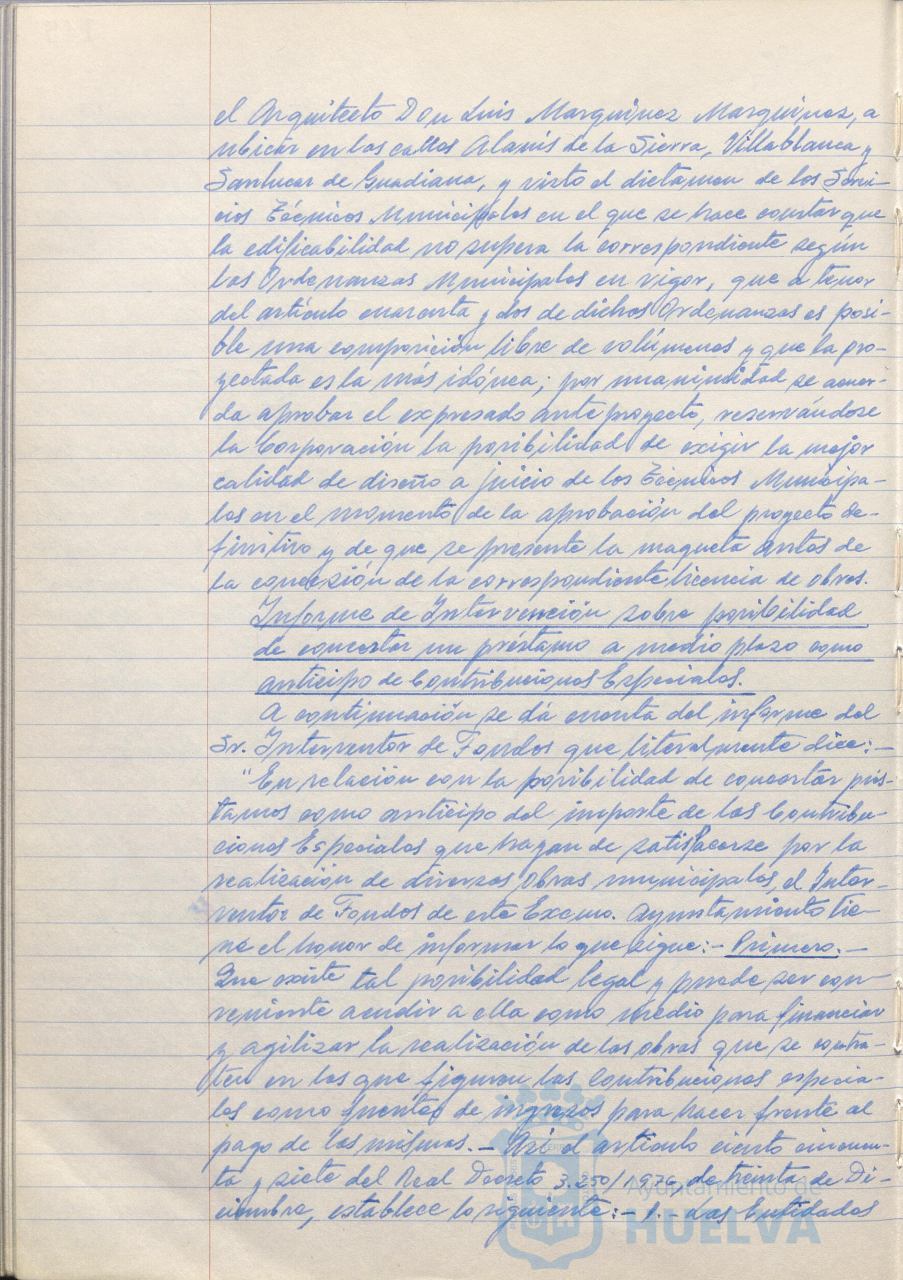 el Arquitecto Don Luis Marquinez Marquinez, a
ubicar en las calles Alanís de la Sierra, Villablanca y
Sanlucar de Guadiana, y visto el dictamen de los Servi-
cios Técnicos Municipales en el que se hace constar que
la edificabilidad no supera la correspondiente según
las Ordenanzas Municipales en vigor, que a tenor
del artículo cuarenta y dos de dichas Ordenanzas es posi-
ble una composición libre de volúmenes y que la pro-
yectada es la más idónea; por unanimidad se acuer-
da aprobar el expresado anteproyecto, reservándose
la Corporación la posibilidad de exigir la mejor
calidad de diseño a juicio de los Técnicos Municipa-
les en el momento de la aprobación del proyecto de-
finitivo y de que se presente la maqueta antes de
la concesión de la correspondiente licencia de obras.
Informe de Intervención sobre posibilidad
de concertar un préstamo a medio plazo como
anticipo de Contribuciones Especiales.
A continuación se dá cuenta del informe del
Sr. Interventor de Fondos que literalmente dice:-
"En relación con la posibilidad de concertar prés-
tamos como anticipo del importe de las Contribu-
ciones Especiales que hayan de satisfacerse por la
realización de diversas obras municipales, el Inter-
ventor de Fondos de este Excmo. Ayuntamiento tie-
ne el honor de informar lo que sigue:- Primero.-
Que existe tal posibilidad legal y puede ser con-
veniente acudir a ella como medio para financiar
y agilizar la realización de las obras que se contra-
ten en las que figuran las Contribuciones especia-
les como fuentes de ingresos para hacer frente al
pago de las mismas.- Así el artículo ciento cincuen-
ta y siete del Real Decreto 3.250/1976, de treinta de Di-
ciembre, establece lo siguiente:- 1.- Las Entidades
Ayuntamiento de
HUELVA